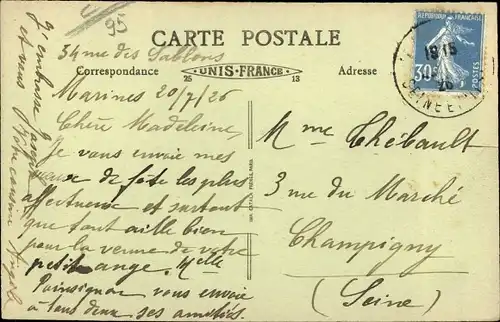 95
CARTE POSTALE
34 rue des Sablons
Correspondance
UNIS-FRANCE
25
13
Adresse
RÉPUBLIQUE FRANÇAISE
30c
POSTES
18 15
26
SEINE ET
Marines 20/7/26
Chère Madeleine,
Je vous envoie mes
de fête les plus
affectueux et surtout
que tout aille bien
pour la venue de votre
petit ange. Melle
vous envoie
à tous deux ses amitiés.
J'embrasse
et vous
Votre cousine
Mme Thébault
3 rue du Marché
Champigny
(Seine)